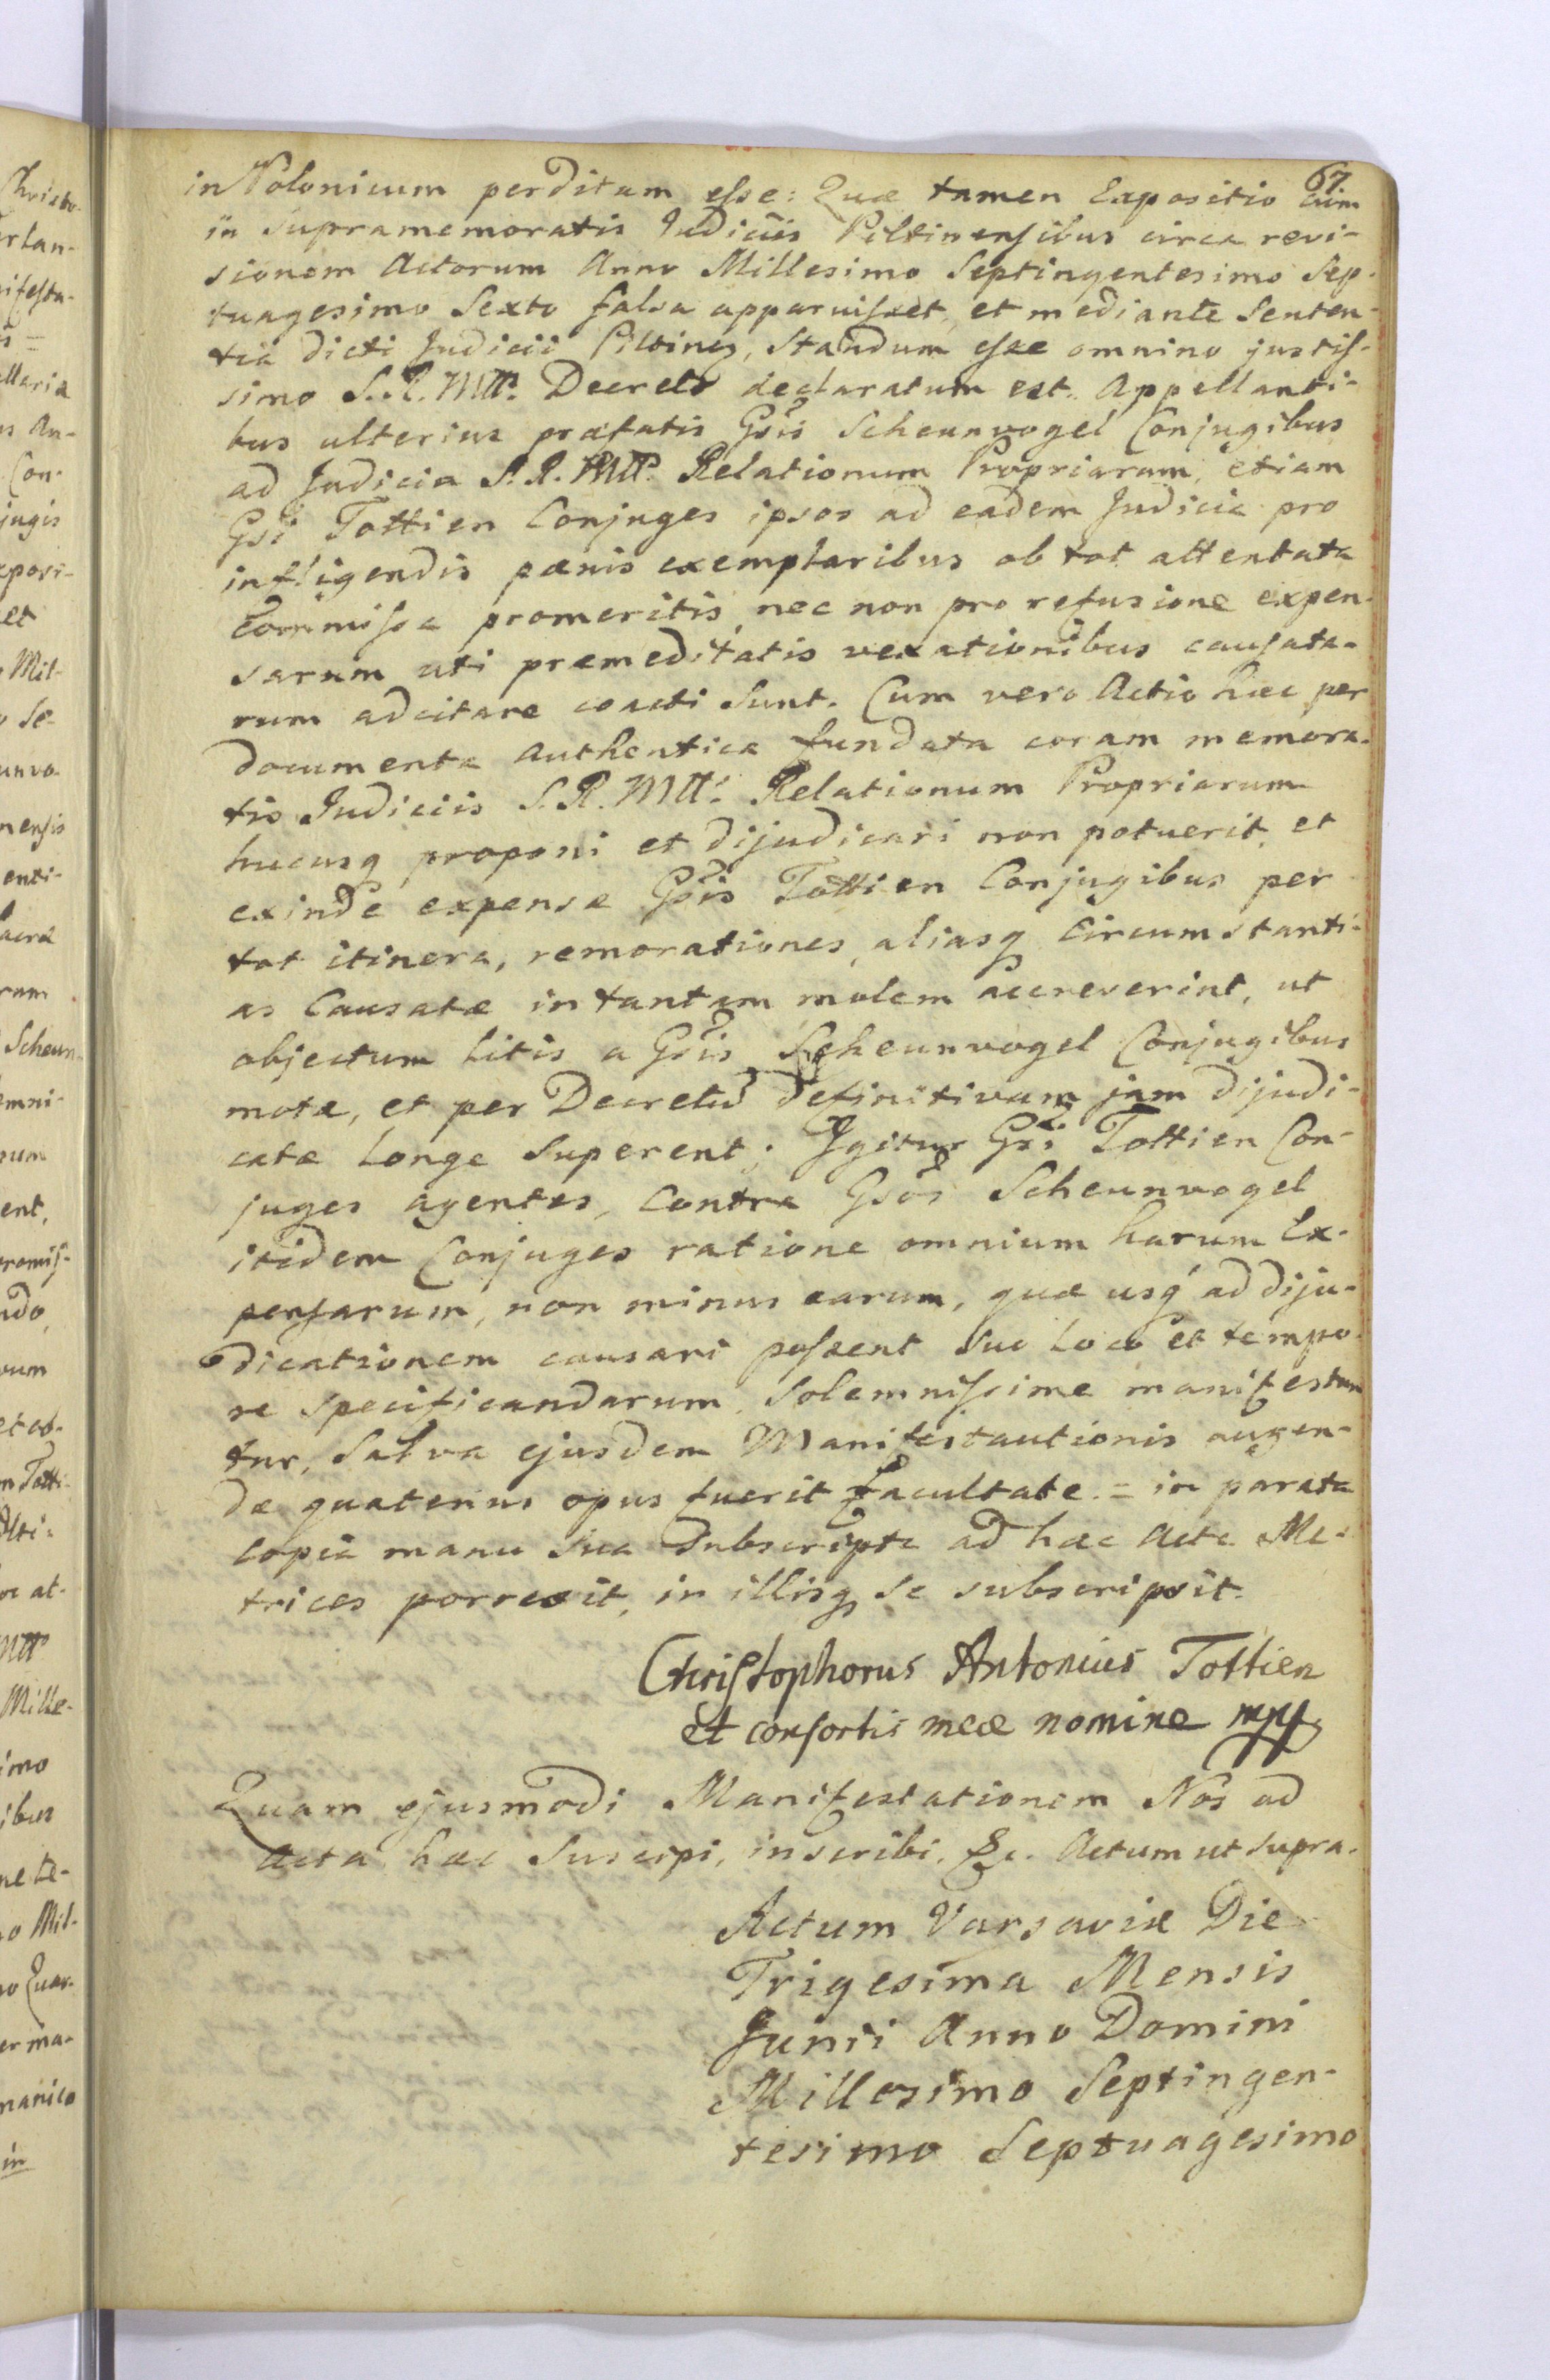 67
in Polonicum perditam esse: Quæ tamen Expositio cum
in supramemoratis Judiciis Piltinensibus circa revi-
sionem Actorum Anno Millesimo Septingentesimo Sep-
tuagesimo Sexto falsa apparuisset, et mediante Senten-
tia dicti Judicii Piltineñ, standum esse omnino justis-
simo S. R. Mtt. Decreto declaratum est. Appellanti-
bus ulterius præfatis Gsis Scheunvogel Conjugibus
ad Judicia S. R. Mtt. Relationum Propriarum, etiam
Gsi Tottien Conjuges ipsos ad eadem Judicia pro
infligendis pænis exemplaribus ob tot attentata
Commissa promeritis, nec non pro refusione expen-
sarum uti præmeditatis vexationibus causata-
rum adcitare coacti sunt. Cum vero Actio hæc per
documenta authentica fundata coram memora-
tis Judiciis S. R. Mtt. Relationum Propriarum
hucusq proponi et dijudicari non potuerit, et
exinde expensæ Gsis Tottien Conjugibus per
tot itinera, remorationes, aliasq Circumstanti-
as Causatæ in tantam molem accreverint, ut
objectum Litis a Gsis Scheunvogel Conjugibus
motæ, et per Decretũ definitivum jam dijudi-
catæ longe superent; Igitur Gsi Tottien Con-
juges agentes, Contra Gsos Scheunvogel
itidem Conjuges ratione omnium harum Ex-
pensarum, non minus earum, quæ usq ad diju-
dicationem causari possent suo loco et tempo-
re specificandarum, solemnissime manifestan
tur, salva ejusdem Manifestautionis augen-
dæ quatenus opus fuerit facultate. = in parata
copia manu sua subscripta ad hæc Acta Me-
trices porrexit, in illisq se subscripsit.
Christophorus Antonius Tottien
et consortis meæ nomine mpp
Quam ejusmodi Manifestationem Nos ad
Acta hæc suscipi, inscribi, &c. Actum ut supra.
Actum Varsaviæ Die
Trigesima Mensis
Junii Anno Domini
Millesimo Septingen-
tesimo Septuagesimo